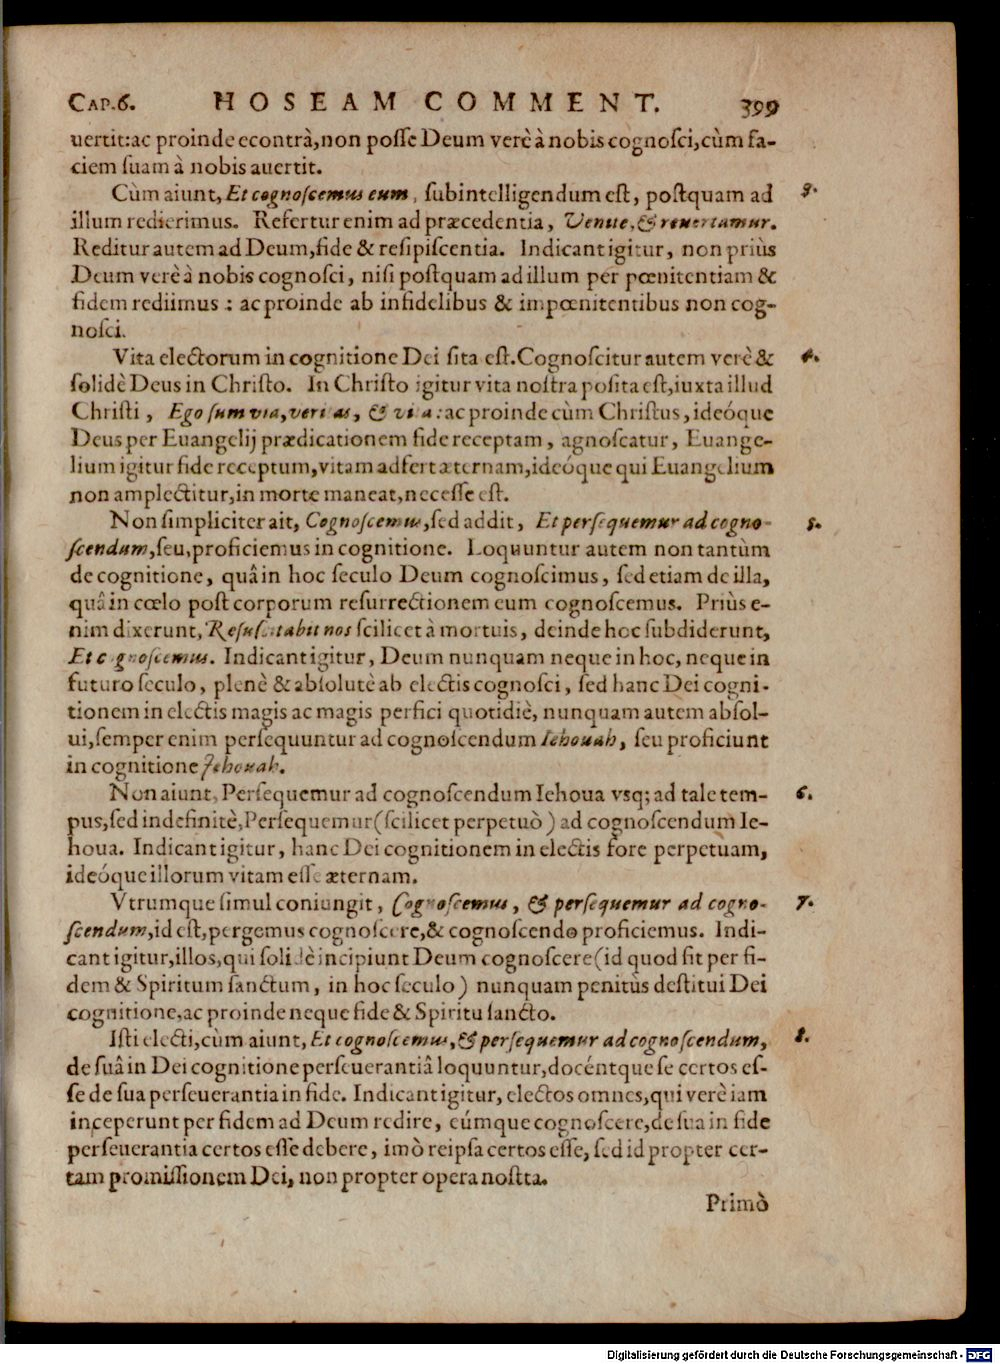 CAP.6. HOSEAM COMMENT. 399
uertit:ac proinde econtrà,non posſe Deum verè à nobis cognoſci,cùm fa-
ciem ſuam à nobis auertit.
Cùm aiunt, Et cognoſcemus eum, ſubintelligendum eſt, poſtquam ad 3.
illum redierimus. Refertur enim ad præcedentia, Venite, & reuertamur.
Reditur autem ad Deum,fide & reſipiſcentia. Indicant igitur, non priùs
Deum verè à nobis cognoſci, niſi poſtquam ad illum per pœnitentiam &
fidem rediimus : ac proinde ab infidelibus & impœnitentibus non cog-
noſci.
Vita electorum in cognitione Dei ſita eſt. Cognoſcitur autem verè & 4.
ſolidè Deus in Chriſto. In Chriſto igitur vita noſtra poſita eſt,iuxta illud
Chriſti, Ego ſum via, veritas, & vita: ac proinde cùm Chriſtus, ideóque
Deus per Euangelij prædicationem fide receptam, agnoſcatur, Euange-
lium igitur fide receptum,vitam adfert æternam,ideóque qui Euangelium
non amplectitur,in morte maneat,neceſſe eſt.
Non ſimpliciter ait, Cognoſcemus,ſed addit, Et perſequemur ad cogno- 5.
ſcendum,ſeu,proficiemus in cognitione. Loquuntur autem non tantùm
de cognitione, quâ in hoc ſeculo Deum cognoſcimus, ſed etiam de illa,
quâ in cœlo poſt corporum reſurrectionem eum cognoſcemus. Priùs e-
nim dixerunt, Reſuſcitabit nos ſcilicet à mortuis, deinde hoc ſubdiderunt,
Et cognoſcemus. Indicant igitur, Deum nunquam neque in hoc, neque in
futuro ſeculo, plenè & abſolutè ab electis cognoſci, ſed hanc Dei cogni-
tionem in electis magis ac magis perfici quotidiè, nunquam autem abſol-
ui,ſemper enim perſequuntur ad cognoſcendum Iehouah, ſeu proficiunt
in cognitione Jehouah.
Non aiunt, Perſequemur ad cognoſcendum Iehoua vsq; ad tale tem- 6.
pus,ſed indefinitè,Perſequemur (ſcilicet perpetuò) ad cognoſcendum Ie-
houa. Indicant igitur, hanc Dei cognitionem in electis fore perpetuam,
ideóque illorum vitam eſſe æternam.
Vtrumque ſimul coniungit, Cognoſcemus, & perſequemur ad cogno- 7.
ſcendum,id eſt,pergemus cognoſcere,& cognoſcendo proficiemus. Indi-
cant igitur,illos,qui ſolidè incipiunt Deum cognoſcere (id quod fit per fi-
dem & Spiritum ſanctum, in hoc ſeculo) nunquam penitùs deſtitui Dei
cognitione,ac proinde neque fide & Spiritu ſancto.
Iſti electi,cùm aiunt, Et cognoſcemus, & perſequemur ad cognoſcendum, 8.
de ſuâ in Dei cognitione perſeuerantiâ loquuntur,docéntque ſe certos eſ-
ſe de ſua perſeuerantia in fide. Indicant igitur, electos omnes,qui verè iam
inceperunt per fidem ad Deum redire, eúmque cognoſcere,de ſua in fide
perſeuerantia certos eſſe debere, imò reipſa certos eſſe, ſed id propter cer-
tam promiſſionem Dei, non propter opera noſtta.
Primò
Digitalisierung gefördert durch die Deutsche Forschungsgemeinschaft - DFG